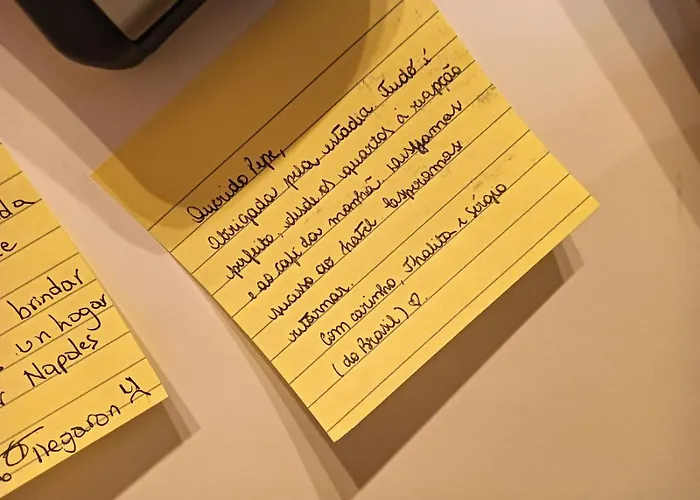 Querido Pepe,
Obrigada pela estadia. Tudo é
perfeito, desde os quartos à recepção
e ao café da manhã. Desejamos
sucesso ao hotel. Esperamos
retornar.
Com carinho, Thalita e Sérgio
(do Brasil) ♡.
da
brindar
un hogar
Napoles
llegaron